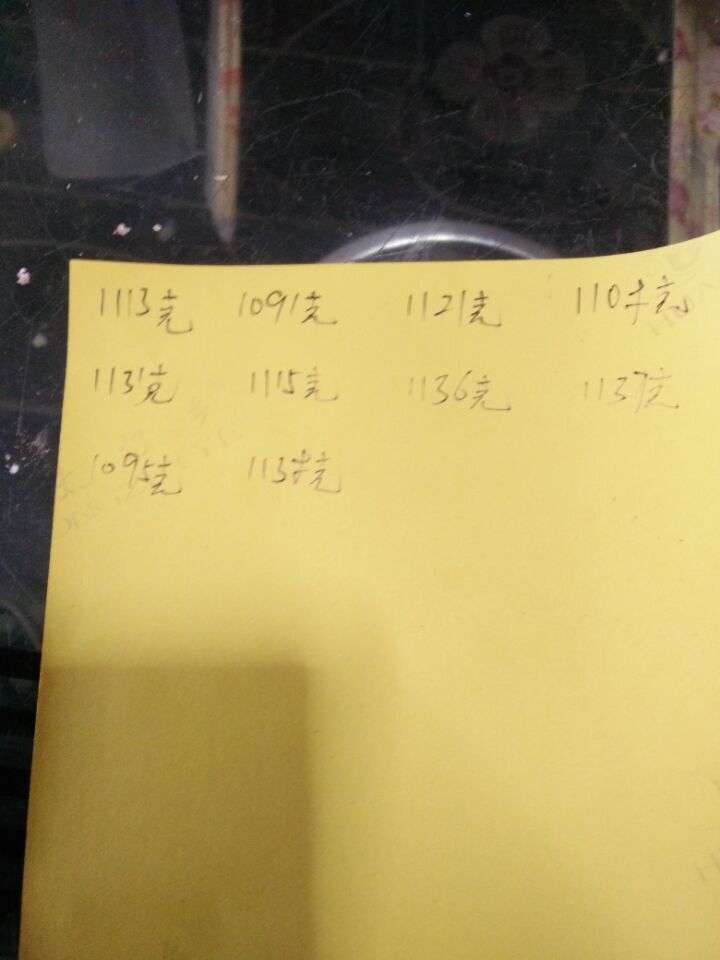 1113克 1091克 1121克 1104克
1131克 1115克 1136克 1137克
1095克 1134克